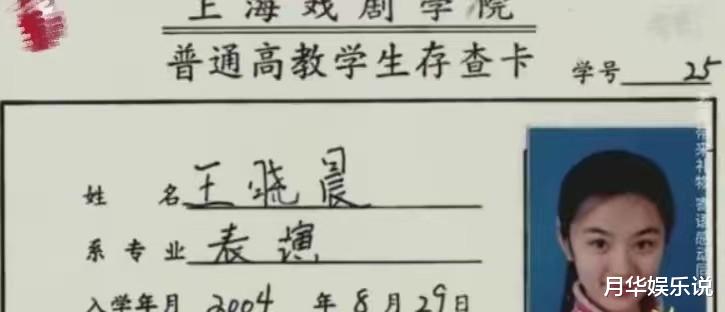 上海戏剧学院
普通高教学生存查卡 学号 25
姓名 王晓晨
系专业 表演
入学年月 2004 年 8 月 29 日
月华娱乐说